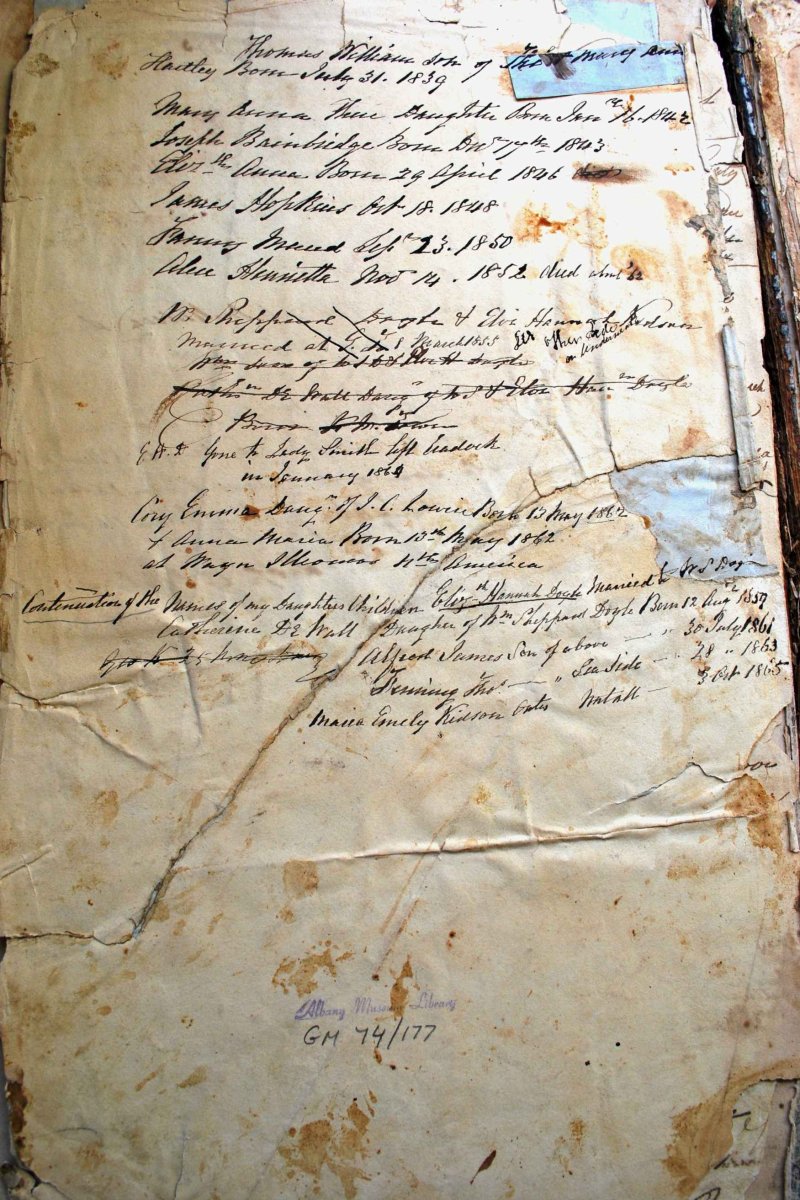 Thomas William son of Thos & Mary Ann
Hartley Born July 31. 1839
Mary Anna Daughter Born Jany 16. 1842
Joseph Bainbridge Born Decr 1843
Elizth Anna Born 29 April 1846
James Hopkins Oct 18. 1848
Fanny Maud Sepr 23. 1850
Alice Henrietta Novr 14. 1852 died
Wm Sheppard Doyle & Eliz Hannah Kidson
married at 8 March 1855 See other side
Wm Son of W S D & Eliz H Doyle
Cathn De Wall Daugr of W S & Eliz Hann Doyle
Born
Gone to Lady Smith left Cradock
in January 1864
Cory Emma Daugr of J. C. Lowrie Born 13 May 1862
& Anna Maria Born 13th May 1862
at America
Continuation of the Names of my Daughters Children Elizth Hannah Doyle Married to W S Doyle
Catherine De Wall Daughter of Wm Sheppard Doyle Born 12 Augt 1859
Alfred James Son of above " 30 July 1861
Thos " Sea Side 28 " 1863
Maria Emely Kidson Natall 3 Oct 1865
Albany Museum Library
GM 74/177